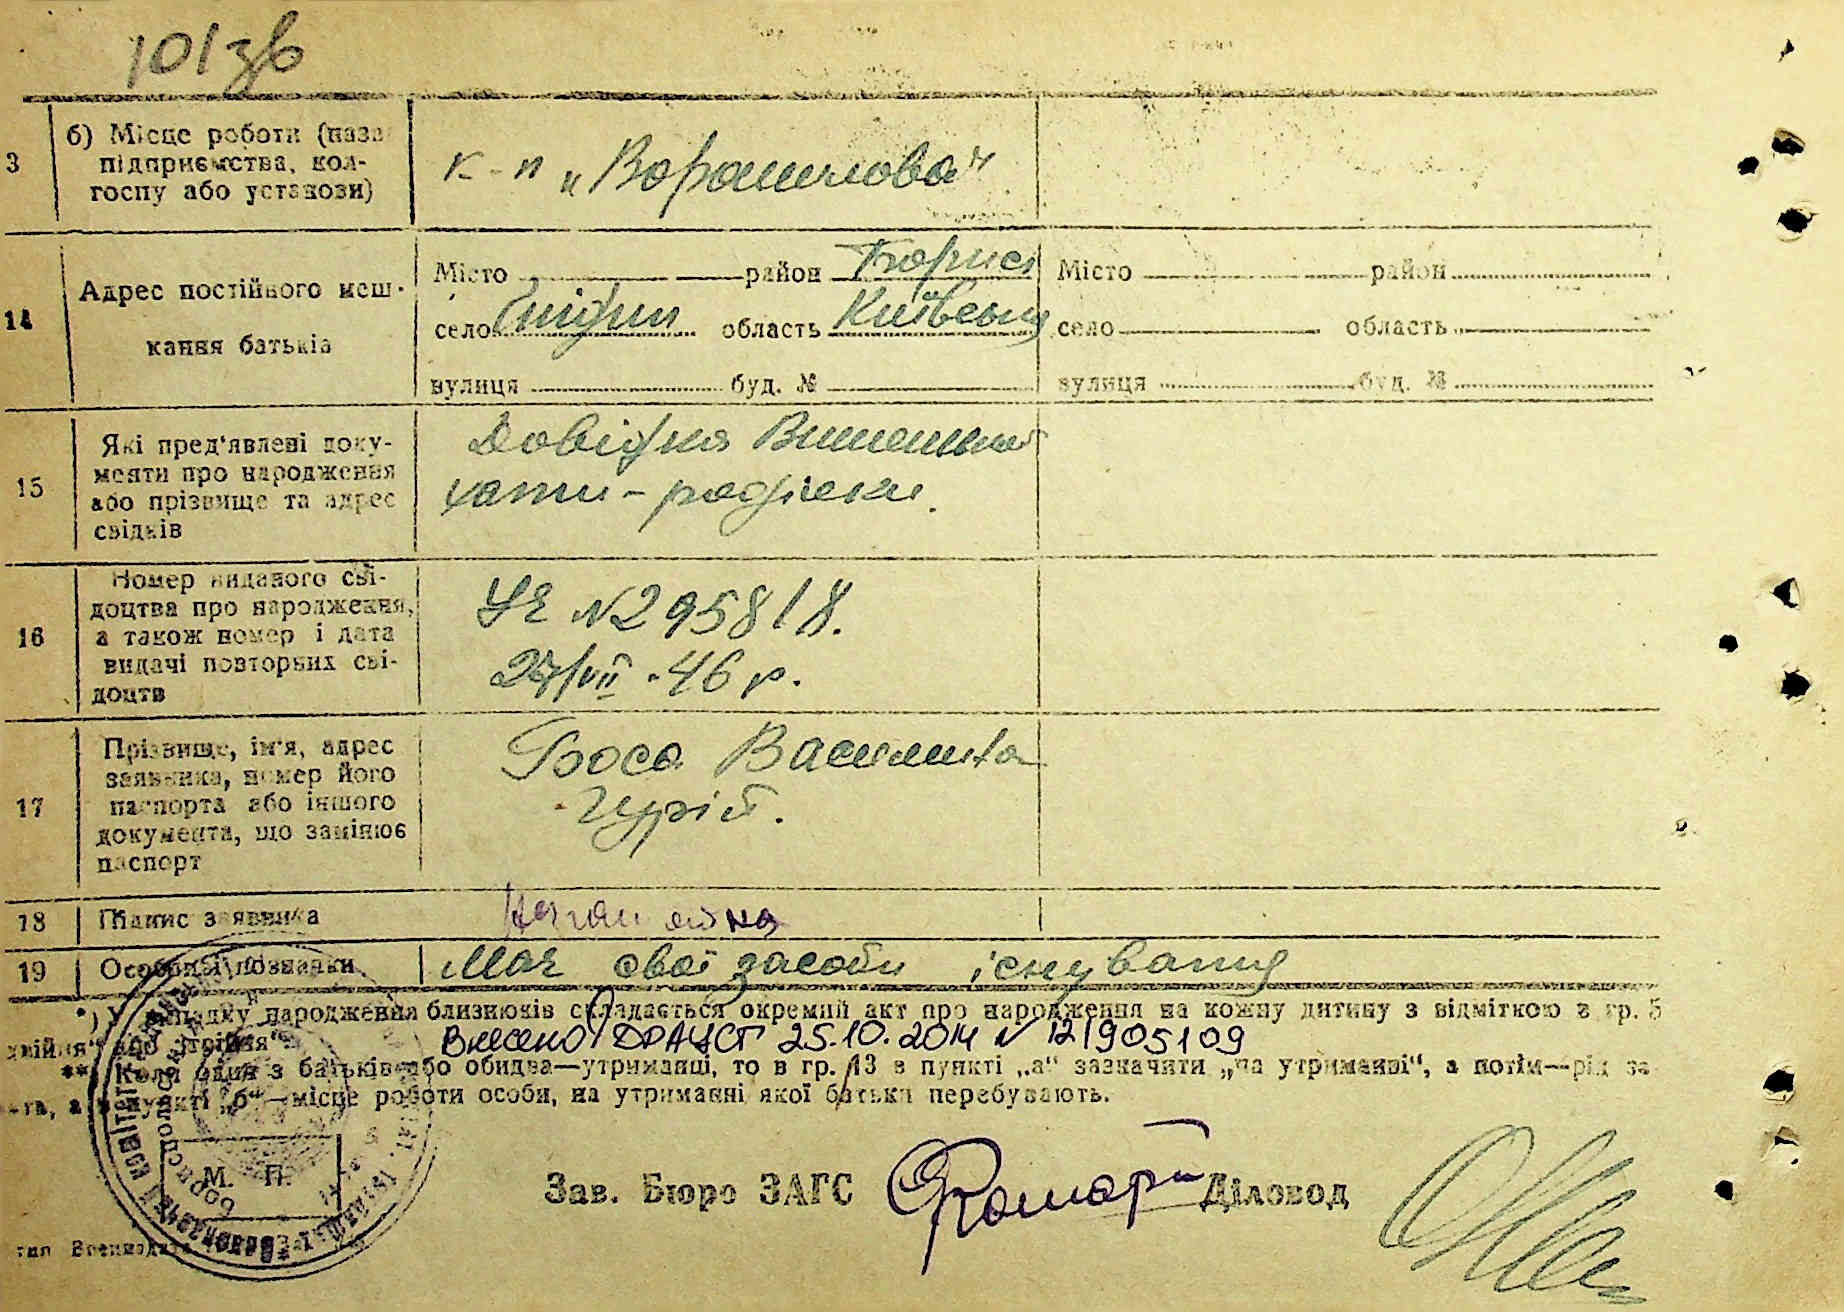 101зв
3
б) Місце роботи (назв
підприємства, кол-
госпу або установи)
к-п „Ворошилова"
14
Адрес постійного меш-
кання батьків
Місто район Борисп
село область Київська
вулиця буд. №
Місто район
село область
вулиця буд. №
15
Які пред'явлені доку-
менти про народження
або прізвище та адрес
свідків
Довідка
хати-родільки.
16
Номер виданого сві-
доцтва про народження,
а також номер і дата
видачі повторних сві-
доцтв
УЄ №295818.
27/VII-46 р.
17
Прізвище, ім'я, адрес
заявника, номер його
паспорта або іншого
документа, що замінює
паспорт
Боса Василина
18
Підпис заявника
19
Особливі познаки
Має свої засоби існування
*) У випадку народження близнюків складається окремий акт про народження на кожну дитину з відміткою в гр. 5
двійня" або „трійня".
Внесено ДРАЦСГ 25.10.2014 № 12/905109
**) Коли один з батьків або обидва—утриманці, то в гр. 13 в пункті „а" зазначити „на утриманні", а потім—рід за-
та, а в пункті „б"—місце роботи особи, на утриманні якої батьки перебувають.
М. П.
Зав. Бюро ЗАГС
Діловод